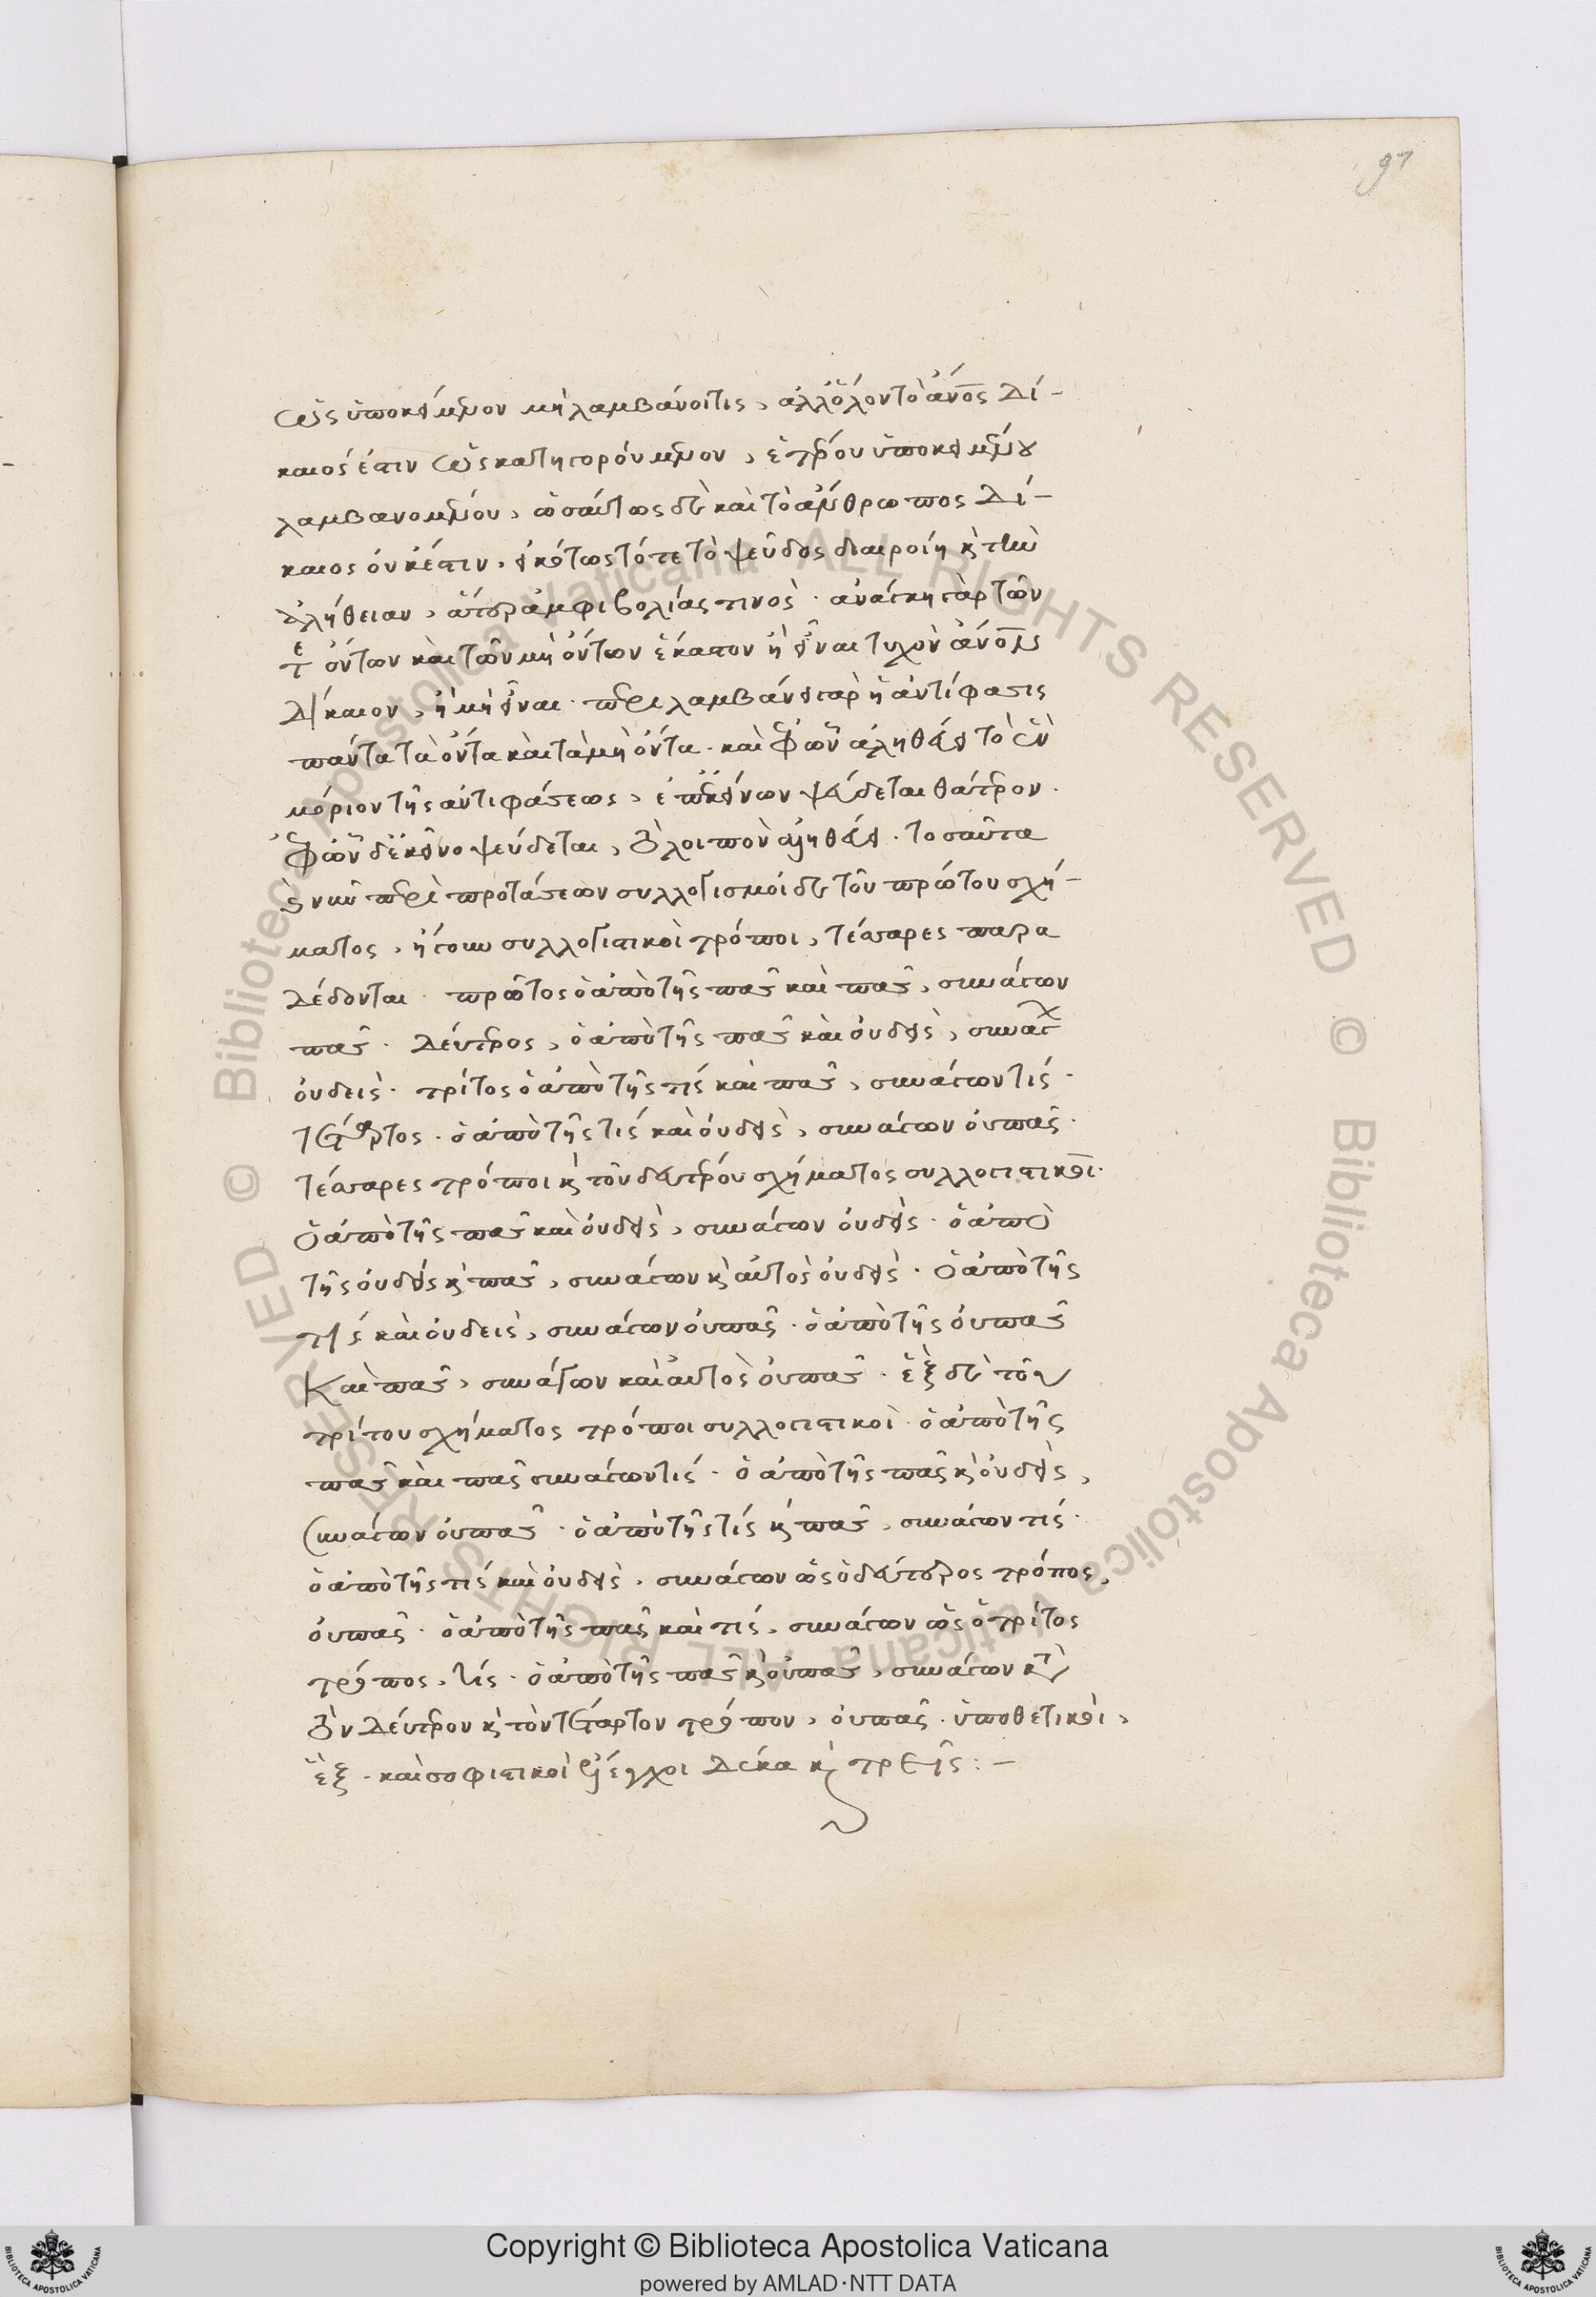 97
ὡς ὑποκείμενον μὴ λαμβάνοι τις, ἀλλ' ὅλον τὸ ἄνος δί-
καιος ἐστιν ὡς κατηγορούμενον, ἑτέρου ὑποκειμένου
λαμβανομένου, ὡσαύτως δὲ καὶ τὸ ἄνθρωπος δί-
καιος οὐκ ἐστιν, εἰκότως τότε τὸ ψεῦδος διαιροίη κ τὴν
ἀλήθειαν, ἄτερ ἀμφιβολίας τινὸς. ἀνάγκη γὰρ τῶν
τε ὄντων καὶ τῶν μὴ ὄντων ἕκαστον ἢ εἶναι τυχὸν ἄνον
δίκαιον, ἢ μὴ εἶναι. περιλαμβάνει γὰρ ἡ ἀντίφασις
πάντα τὰ ὄντα καὶ τὰ μὴ ὄντα. καὶ ἐφ' ὧν ἀληθεύει τὸ ἓν
μόριον τῆς ἀντιφάσεως, ἐπ' ἐκείνων ψεύδεται θάτερον.
ἐφ' ὧν δ' ἐκεῖνο ψεύδεται, τὸ λοιπὸν ἀληθεύει. τοσαῦτα
κ νῦν περὶ προτάσεων συλλογισμοί δὲ τοῦ πρώτου σχή-
ματος, ἤγουν συλλογιστικοὶ τρόποι, τέσσαρες παρα
δέδονται. πρῶτος ὁ ἀπὸ τῆς πᾶς καὶ πᾶς, συνάγων
πᾶς. δεύτερος, ὁ ἀπὸ τῆς πᾶς καὶ οὐδεὶς, συνάγων
οὐδεὶς. τρίτος ὁ ἀπὸ τῆς τίς καὶ πᾶς, συνάγων τίς.
τέταρτος. ὁ ἀπὸ τῆς τίς καὶ οὐδεὶς, συνάγων οὐ πᾶς.
τέσσαρες τρόποι κ τοῦ δευτέρου σχήματος συλλογιστικοὶ.
ὁ ἀπὸ τῆς πᾶς καὶ οὐδεὶς, συνάγων οὐδεὶς. ὁ ἀπὸ
τῆς οὐδεὶς κ πᾶς, συνάγων κ αὐτὸς οὐδεὶς. ὁ ἀπὸ τῆς
τὶς καὶ οὐδεὶς, συνάγων οὐ πᾶς. ὁ ἀπὸ τῆς οὐ πᾶς
καὶ πᾶς, συνάγων καὶ αὐτὸς οὐ πᾶς. ἓξ δὲ τοῦ
τρίτου σχήματος τρόποι συλλογιστικοὶ. ὁ ἀπὸ τῆς
πᾶς καὶ πᾶς συνάγων τίς. ὁ ἀπὸ τῆς πᾶς κ οὐδεὶς,
συνάγων οὐ πᾶς. ὁ ἀπὸ τῆς τίς κ πᾶς, συνάγων τίς.
ὁ ἀπὸ τῆς τίς καὶ οὐδεὶς, συνάγων ὡς ὁ δεύτερος τρόπος,
οὐ πᾶς. ὁ ἀπὸ τῆς πᾶς καὶ τίς, συνάγων ὡς ὁ τρίτος
τρόπος, τίς. ὁ ἀπὸ τῆς πᾶς κ οὐ πᾶς, συνάγων κατὰ
τὸν δεύτερον κ τὸν τέταρτον τρόπον, οὐ πᾶς. ὑποθετικοὶ,
ἓξ. καὶ σοφιστικοὶ ἔλεγχοι δέκα κ τρεῖς :—
Copyright © Biblioteca Apostolica Vaticana
powered by AMLAD·NTT DATA